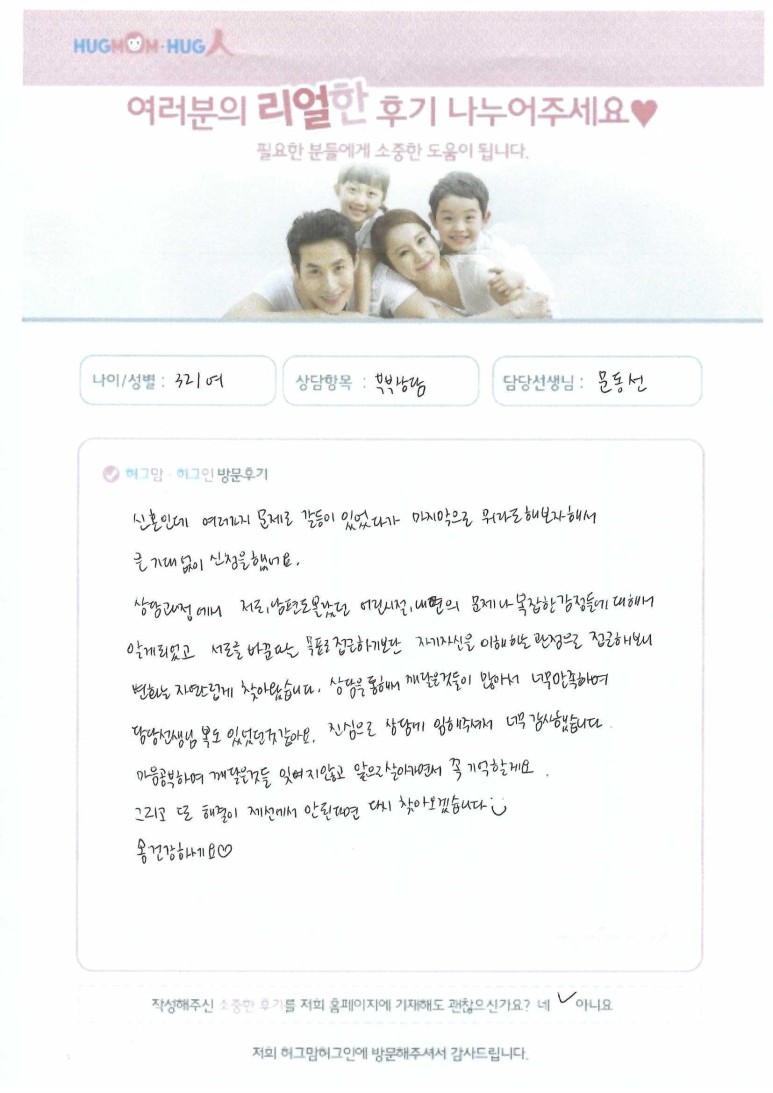 HUGMOM·HUG人
여러분의 리얼한 후기 나누어주세요♥
필요한 분들에게 소중한 도움이 됩니다.
나이/성별 : 32/여
상담항목 : 부부상담
담당선생님 : 문동선
허그맘·허그인 방문후기
신혼인데 여러가지 문제로 갈등이 있었다가 마지막으로 뭐라도해보자해서
큰 기대없이 신청을했어요.
상담과정에서 저도, 남편도몰랐던 어린시절, 내면의 문제나 복잡한감정들에 대해서
알게되었고 서로를 바꾼다는 목표로접근하기보단 자기자신을 이해하는 관점으로 접근해보니
변화는 자연스럽게 찾아왔습니다. 상담을통해 깨달은것들이 많아서 너무만족하며
담당선생님 복도 있었던것같아요. 진심으로 상담에 임해주셔서 너무감사했습니다.
마음공부하며 깨달은것들 잊혀지않고 앞으로살아가면서 꼭 기억할게요.
그리고 또 해결이 제선에서 안된다면 다시 찾아오겠습니다
건강하세요♡
작성해주신 소중한 후기를 저희 홈페이지에 기재해도 괜찮으신가요? 네 ✓ 아니요
저희 허그맘허그인에 방문해주셔서 감사드립니다.